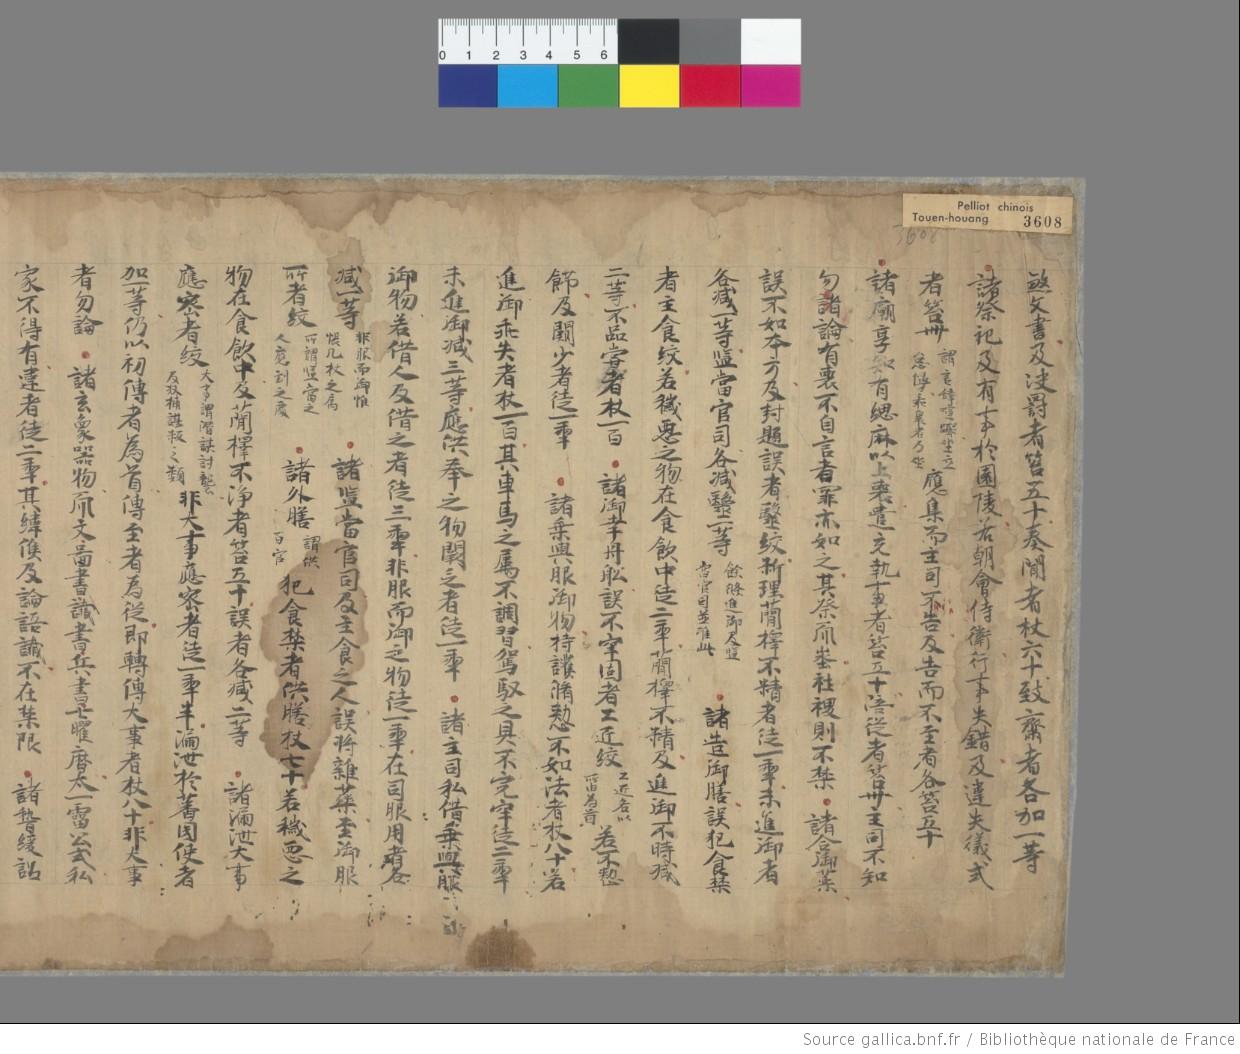 Pelliot chinois
Touen-houang 3608
煞文書及决罸者笞五十奏聞者杖六十致齋者各加一等
諸祭祀及有事於園陵若朝會侍衛行事失錯及違失儀式
者笞卌 應集而主司不告及告而不至者各笞五十
諸廟享 有緦麻以上喪遣充執事者笞五十陪從者笞卌主司不知
勿論有喪不自言者罪亦如之其祭 社稷則不禁 諸合御藥
誤不如本方及封題誤者醫絞新理蕳擇不精者徒一年未進御者
各减一等監當官司各减醫一等 餘條進御及監
當官司並准此 諸造御膳誤犯食禁
者主食絞若穢惡之物在食飲中徒二年蕳擇不精及進御不時减
二等不品嘗者杖一百 諸御幸舟舩誤不牢固者工近絞 若不整
飾及闕少者徒一年 諸乘輿服御物持護脩整不如法者杖八十若
進御乖失者杖一百其車馬之属不調習駕馭之具不完牢徒二年
未進御减三等應供奉之物闕乏者徒一年 諸主司私借乘輿服
御物若借人及借之者徒三年非服而御之物徒一年在司服用者各
减一等 非服而御惟
帳几杖之属 諸監當官司及主食之人誤將雜藥至御服
所者絞 所謂監當之
諸外膳 謂供
百官 犯食禁者供膳杖七十若穢惡之
物在食飲中及蕳擇不净者笞五十誤者各减二等 諸漏泄大事
應密者絞 大事謂潜謀討襲
及 捕謀叛之類 非大事應密者徒一年半漏泄於蕃囯使者
加一等仍以初傳者為首傳至者為從即轉傳大事者杖八十非大事
者勿論 諸玄象器物 文啚書䜟書兵書七曜曆太一雷公式私
家不得有違者徒二年其緯候及論語䜟不在禁限 諸 緩
3608
Source gallica.bnf.fr / Bibliothèque nationale de France
0 1 2 3 4 5 6